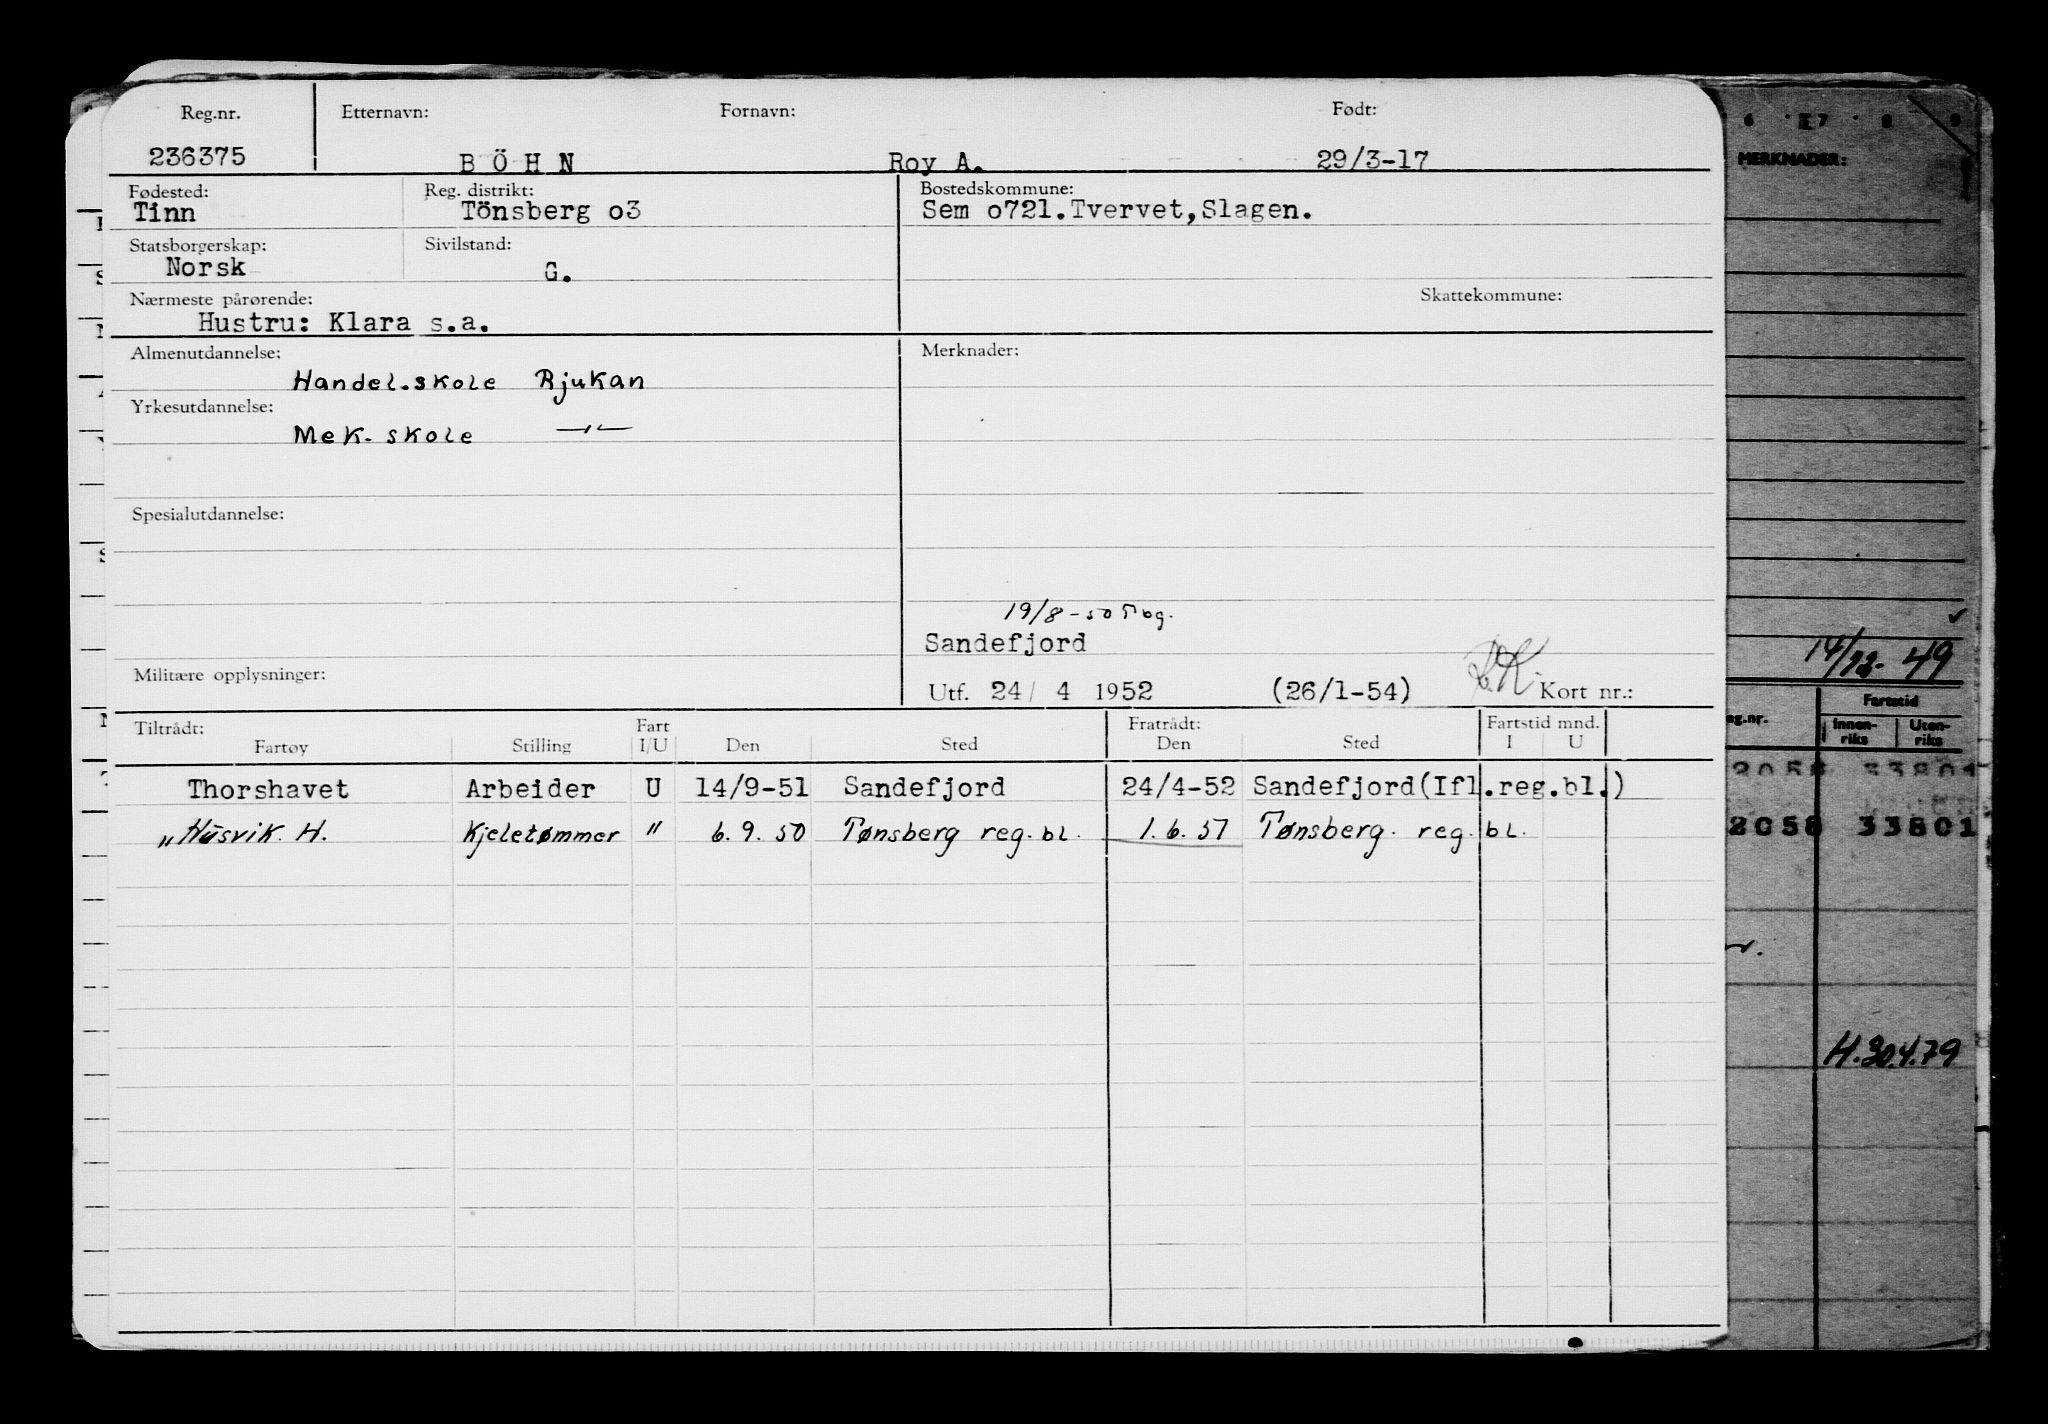 Reg.nr. Etternavn: Fornavn: Født:
236375 BÖHN Roy A. 29/3-17
Fødested: Reg. distrikt: Bostedskommune:
Tinn Tönsberg o3 Sem o721.Tvervet,Slagen.
Statsborgerskap: Sivilstand:
Norsk G.
Nærmeste pårørende: Skattekommune:
Hustru: Klara s.a.
Almenutdannelse: Merknader:
Handel.skole Rjukan
Yrkesutdannelse:
Mek. skole —"—
Spesialutdannelse:
19/8-50 Tbg.
Sandefjord
Militære opplysninger:
Utf. 24/ 4 1952 (26/1-54) Kort nr.:
Tiltrådt: Fart Fratrådt: Fartstid mnd.
Fartøy Stilling I/U Den Sted Den Sted I U
Thorshavet Arbeider U 14/9-51 Sandefjord 24/4-52 Sandefjord(Ifl.reg.bl.)
"Husvik. H. Kjeletømmer " 6.9.50 Tønsberg reg.bl. 1.6.51 Tønsberg. reg.bl.
6 7 8 9
MERKNADER:
14/12-49
Fartstid
eg.nr. Innen- Uten-
riks riks
2058 33801
2058 33801
H.30.4.79